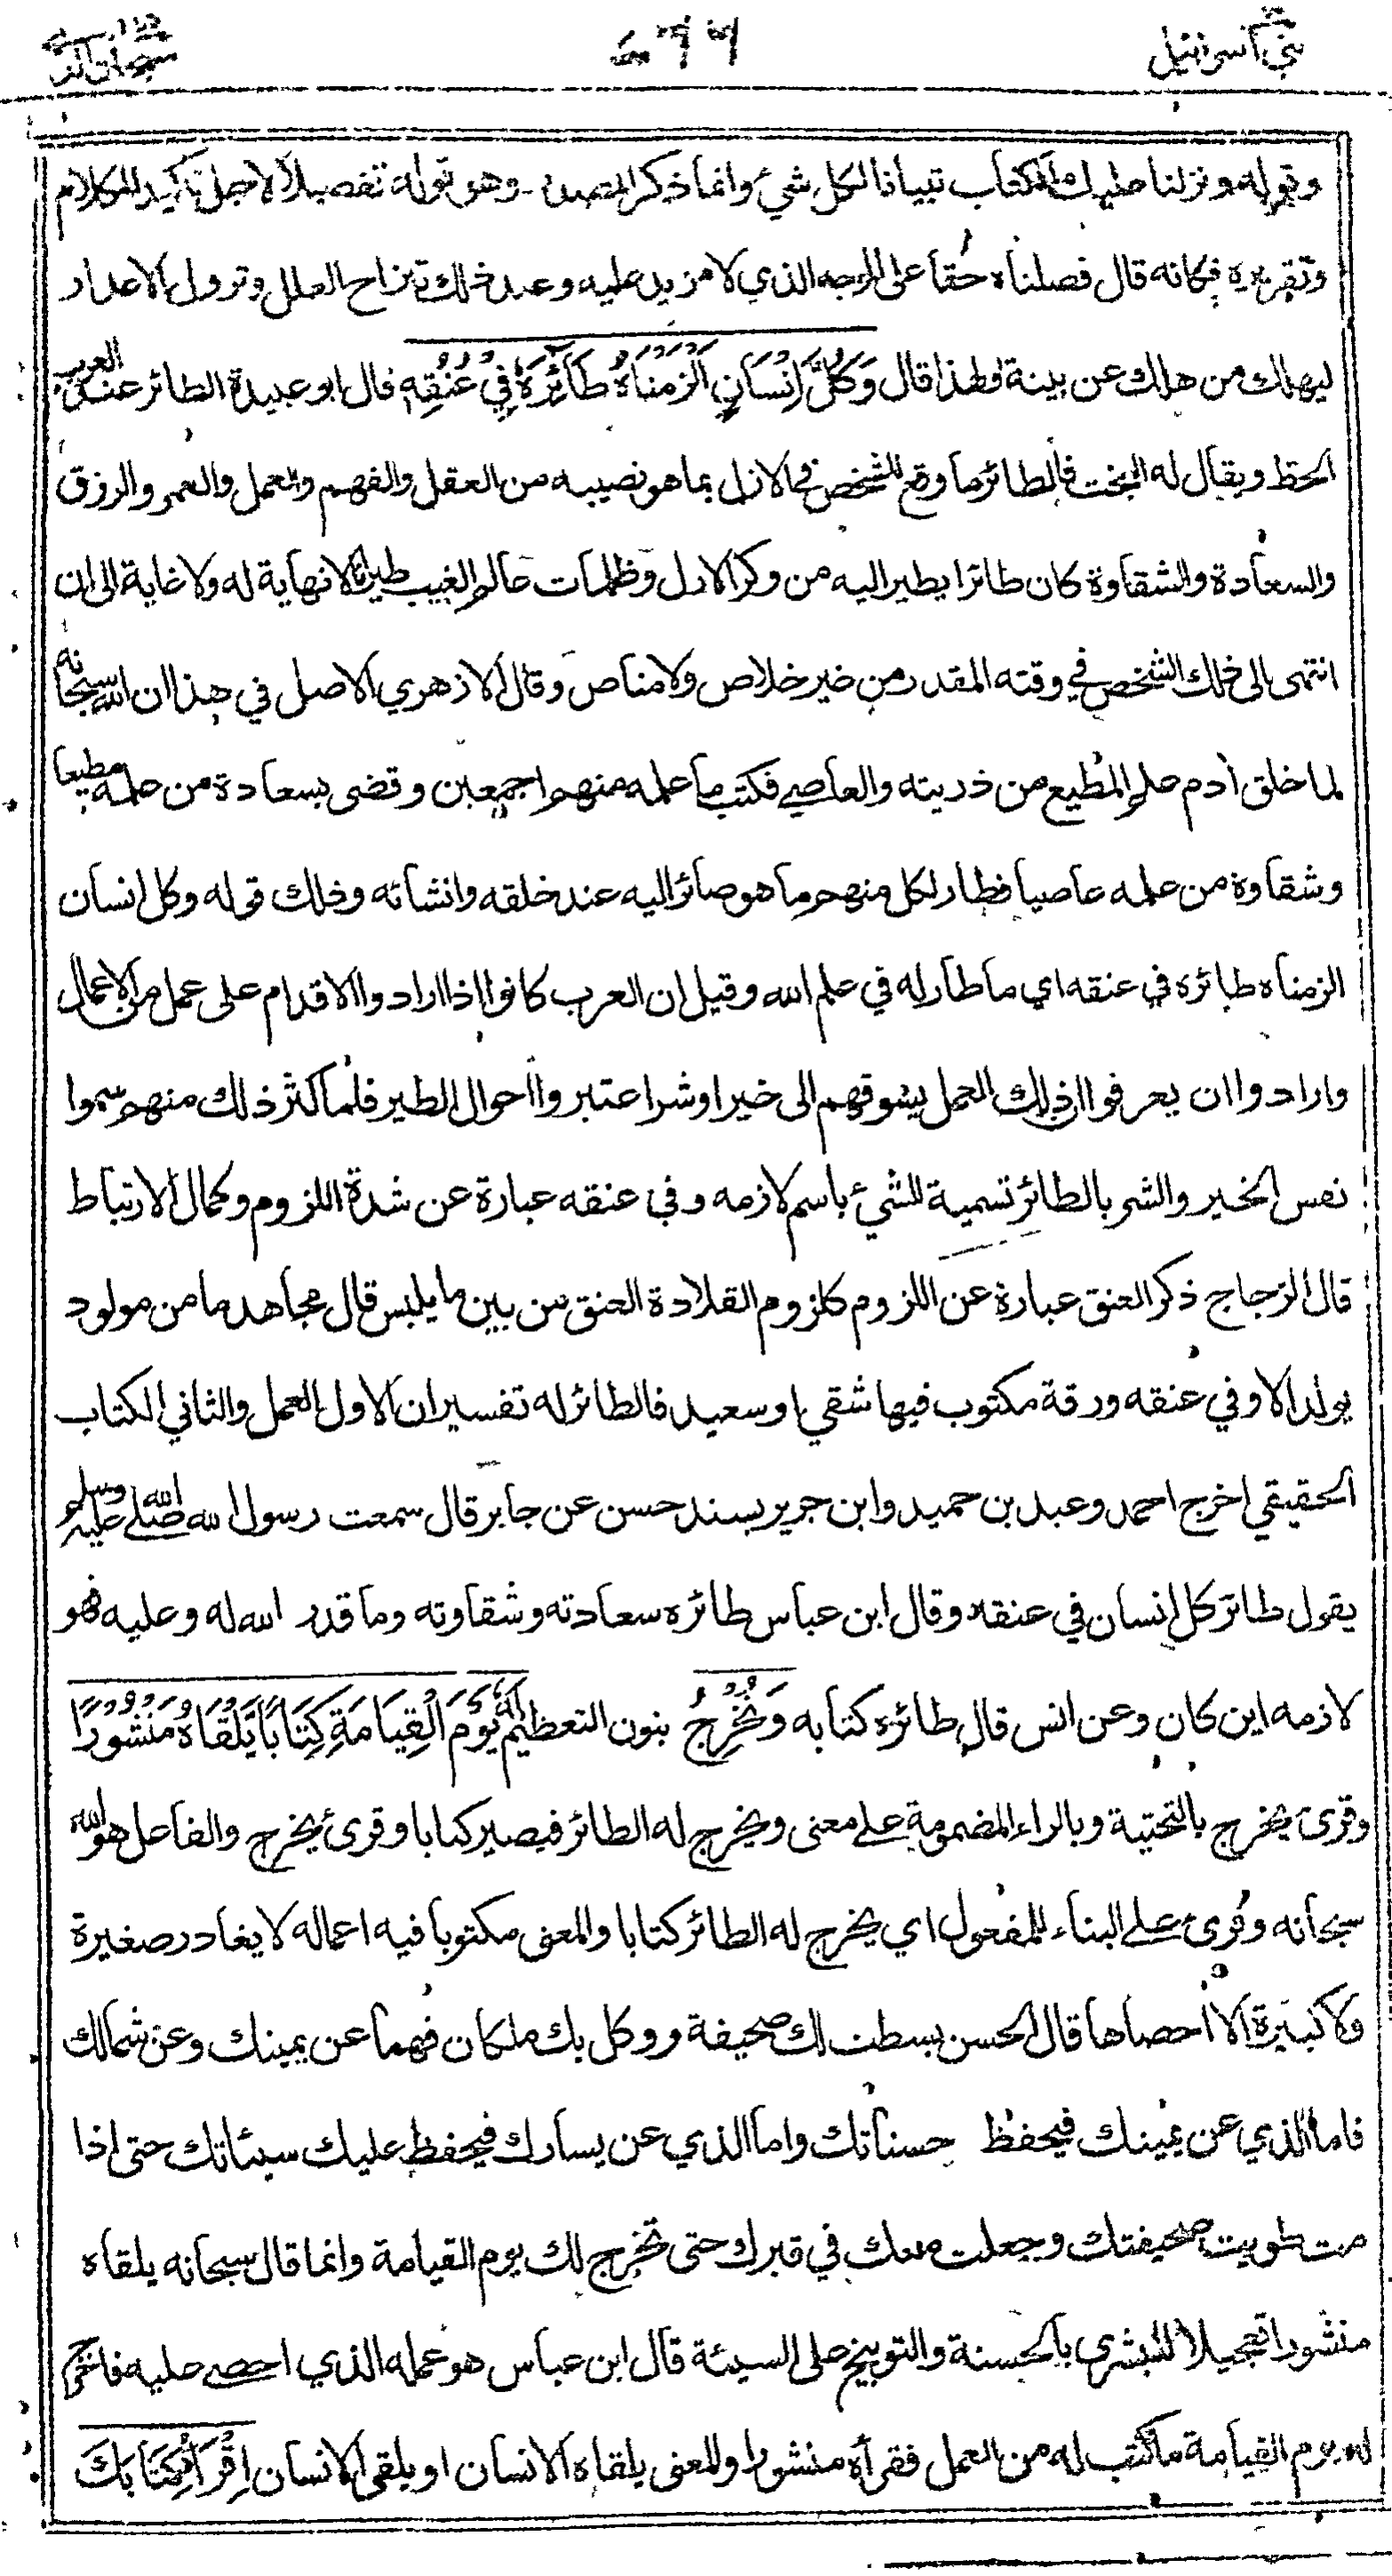 بني اسرائيل ٦٩٩ سبحان الذي
وقوله ونزلنا عليك الكتاب تبيانا لكل شيء وانما ذكر المصدر وهو قوله تفصيلا لاجل تاكيد الكلام
وتقريره فكانه قال فصلناه حقا على الوجه الذي لا مزيد عليه وعند ذلك تنزاح العلل وتزول الاعذار
ليهلك من هلك عن بينة ولهذا قال وَكُلَّ اِنْسَانٍ اَلْزَمْنَاهُ طَآئِرَهٗ فِيْ عُنُقِهٖ قال ابو عبيدة الطائر عند العرب
الحظ ويقال له البخت فالطائر ما وقع للشخص في الازل بما هو نصيبه من العقل والفهم والعمل والعمر والرزق
والسعادة والشقاوة كان طائرا يطير اليه من وكر الازل وظلمات عالم الغيب طيرانا لا نهاية له ولا غاية الى ان
انتهى الى ذلك الشخص في وقته المقدر من غير خلاص ولا مناص وقال الازهري الاصل في هذا ان الله سبحانه
لما خلق آدم علم المطيع من ذريته والعاصي فكتب ما علمه منهم اجمعين وقضى بسعادة من علمه مطيعا
وشقاوة من علمه عاصيا فطار لكل منهم ما هو صائر اليه عند خلقه وانشائه وذلك قوله وكل انسان
الزمناه طائره في عنقه اي ما طار له في علم الله وقيل ان العرب كانوا اذا ارادوا الاقدام على عمل من الاعمال
وارادوا ان يعرفوا ان ذلك العمل يسوقهم الى خير او شر اعتبروا احوال الطير فلما كثر ذلك منهم سموا
نفس الخير والشر بالطائر تسمية للشيء باسم لازمه وفي عنقه عبارة عن شدة اللزوم وكمال الارتباط
قال الزجاج ذكر العنق عبارة عن اللزوم كلزوم القلادة العنق من بين ما يلبس قال مجاهد ما من مولود
يولد الا وفي عنقه ورقة مكتوب فيها شقي او سعيد فالطائر له تفسيران الاول العمل والثاني الكتاب
الحقيقي اخرج احمد وعبد بن حميد وابن جرير بسند حسن عن جابر قال سمعت رسول الله صلى الله عليه وسلم
يقول طائر كل انسان في عنقه وقال ابن عباس طائره سعادته وشقاوته وما قدر الله له وعليه فهو
لازمه اين كان وعن انس قال طائره كتابه وَنُخْرِجُ بنون التعظيم لَهٗ يَوْمَ الْقِيَامَةِ كِتَابًا يَّلْقَاهُ مَنْشُوْرًا
وقرئ يخرج بالتحتية وبالراء المضمومة على معنى ويخرج له الطائر فيصير كتابا وقرئ يخرج والفاعل هو الله
سبحانه وقرئ على البناء للمفعول اي يخرج له الطائر كتابا والمعنى مكتوبا فيه اعماله لا يغادر صغيرة
ولا كبيرة الا احصاها قال الحسن بسطت لك صحيفة ووكل بك ملكان فهما عن يمينك وعن شمالك
فاما الذي عن يمينك فيحفظ حسناتك واما الذي عن يسارك فيحفظ عليك سيئاتك حتى اذا
مت طويت صحيفتك وجعلت معك في قبرك حتى تخرج لك يوم القيامة وانما قال سبحانه يلقاه
منشورا تعجيلا للبشرى بالحسنة والتوبيخ على السيئة قال ابن عباس هو عمله الذي احصي عليه فاخرج
له يوم القيامة ما كتب له من العمل فقرأه منشورا والمعنى يلقاه الانسان او يلقى الانسان اِقْرَاْ كِتَابَكَ